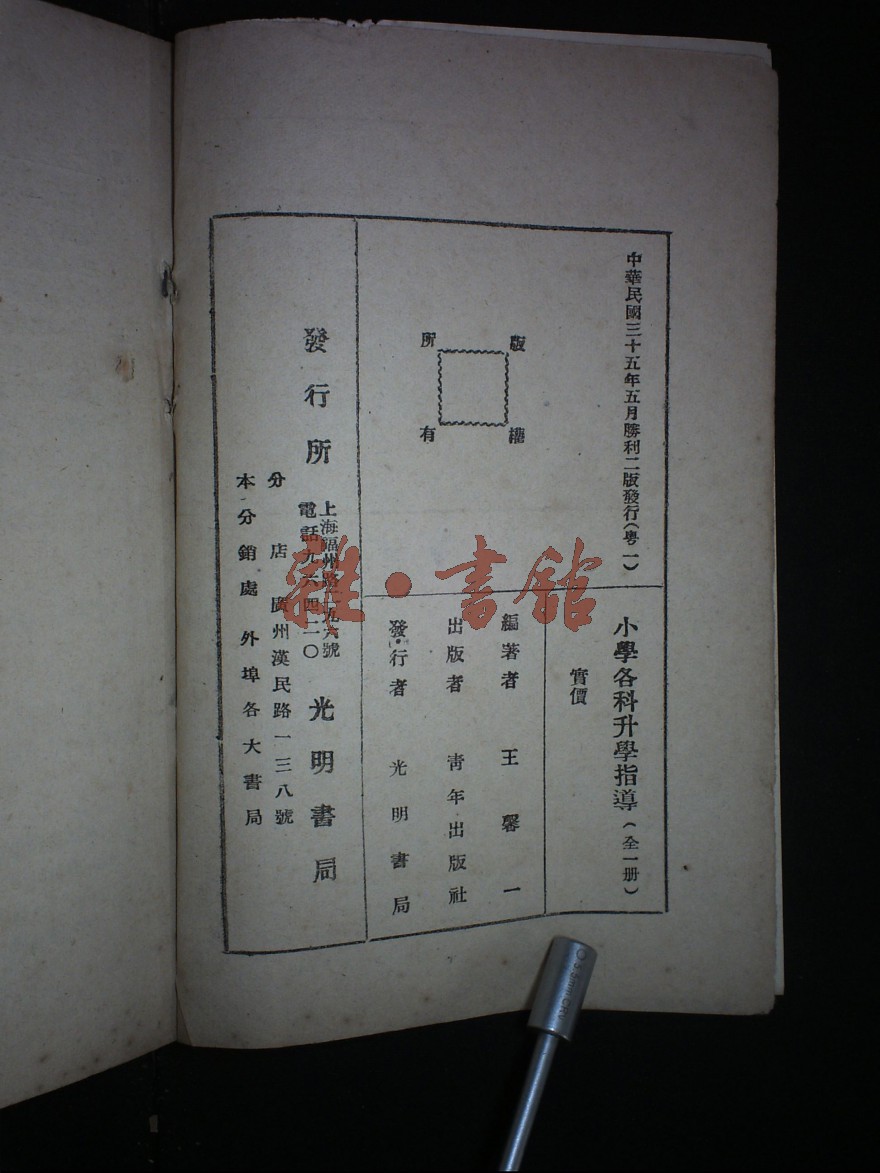 中華民國三十五年五月勝利二版發行(粵一)
版權所有
小學各科升學指導(全一册)
實價
編著者 王馨一
出版者 靑年出版社
發行者 光明書局
發行所
上海福州路
六號
電話九六四二〇
光明書局
分店 廣州漢民路一三八號
本分銷處 外埠各大書局
雜·書館
5.5mm CRV